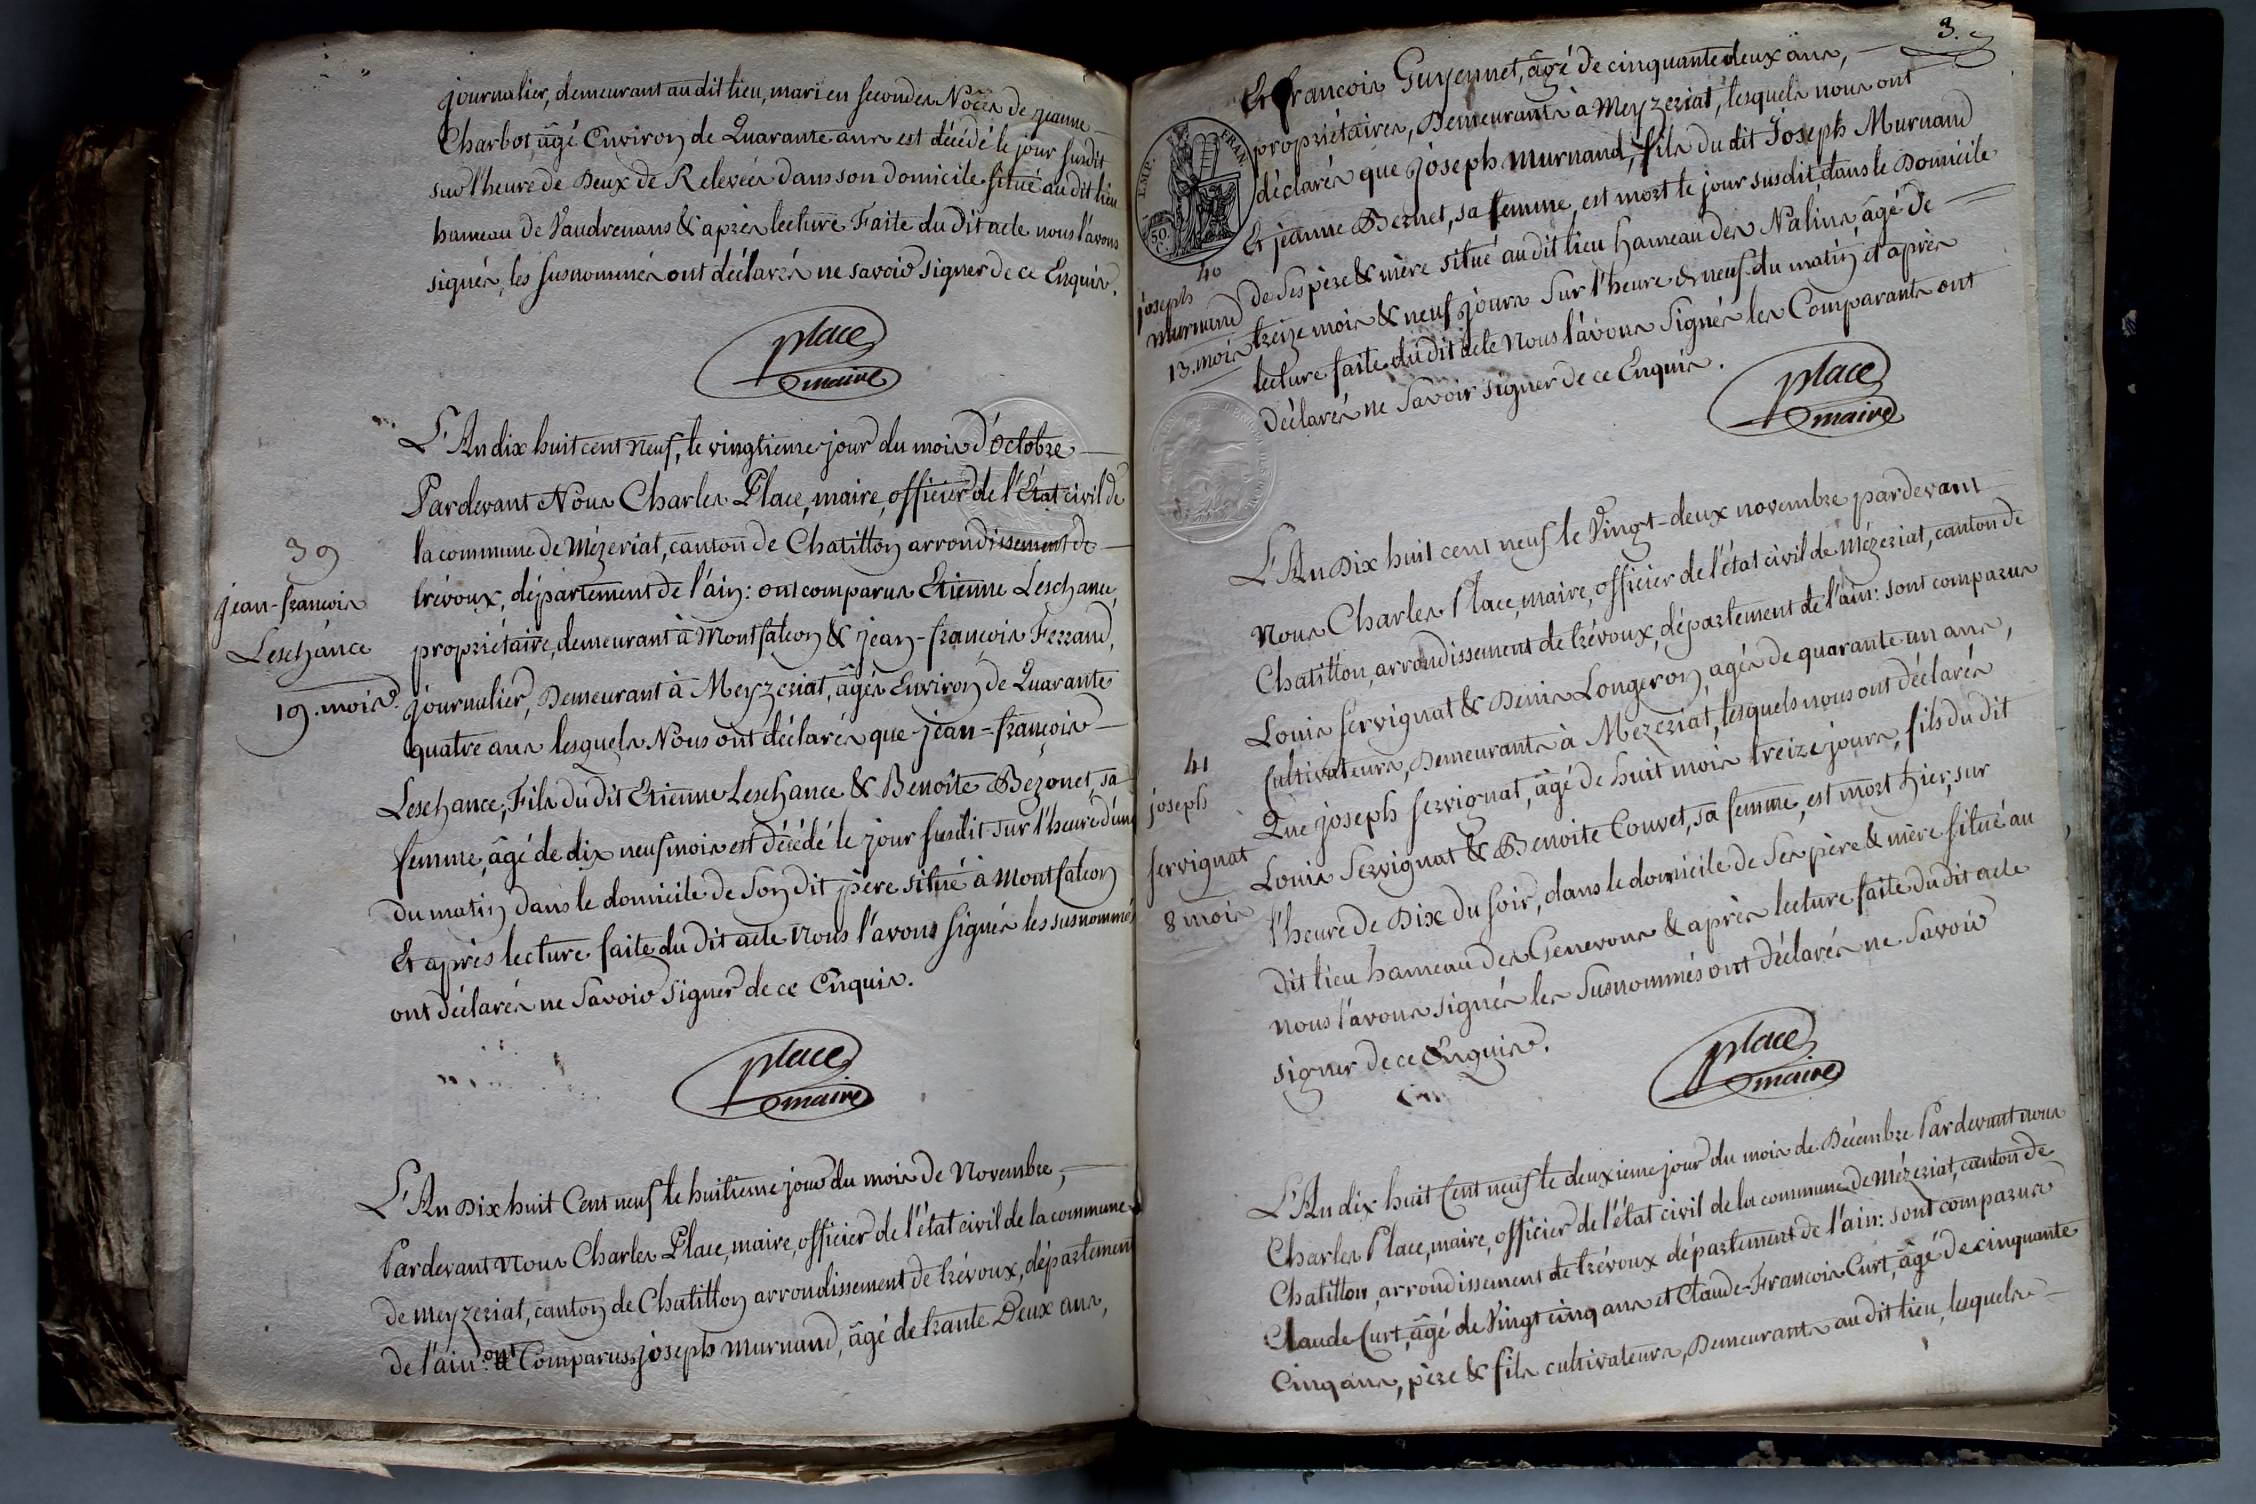 journalier, demeurant au dit lieu, mari en secondes Nôces de jeanne
Charbot, âgé Environ de Quarante ans est décédé le jour susdit
sur l'heure de Deux de Relevées dans son domicile situé au dit lieu
hameau de Vaudrenans & après lecture Faite du dit acte nous l'avons
signés, les susnommés ont déclarés ne savoir signer de ce Enquis.
place
maire
L'An dix huit cent neuf, le vingtieme jour du mois d'Octobre
Pardevant Nous Charles Place, maire, officier de l'Etat civil de
la commune de Mézeriat, canton de Chatillon arrondissement de
trévoux, département de l'ain : ont comparus Etienne Leschance,
propriétaire, demeurant à Montfalcon & jean-françois Ferrand,
journalier, Demeurant à Meyzeriat, âgés Environ de Quarante
quatre ans lesquels Nous ont déclarés que jean-françois
Leschance, Fils du dit Etienne Leschance & Benoîte Bézonet, sa
femme, âgé de dix neuf mois est décédé le jour susdit sur l'heure d'une
du matin dans le domicile de son dit père situé à Montfalcon
Et après lecture faite du dit acte Nous l'avons signés les susnommés
ont déclarés ne savoir signer de ce Enquis.
39
jean-françois
Leschance
19. mois.
place
maire
L'An Dix huit Cent neuf le huitieme jour du mois de Novembre,
Pardevant Nous Charles Place, maire, officier de l'état civil de la commune
de meyzeriat, canton de Chatillon arrondissement de trévoux, département
de l'ain : ont Comparus joseph murnand, âgé de trante Deux ans,
3.
Et francois Guyennet, âgé de cinquante deux ans,
propriétaires, Demeurants à Meyzeriat, lesquels nous ont
déclarés que joseph murnand, fils du dit Joseph Murnand
Et jeanne Bernet, sa femme, est mort le jour susdit, dans le Domicile
de ses père & mère situé au dit lieu hameau des Nalins, âgé de
treize mois & neuf jours sur l'heure de neuf du matin et après
lecture faite du dit acte Nous l'avons signés les Comparants ont
déclarés ne savoir signer de ce Enquis.
EMP. FRAN.
50. C.
40
joseph
murnand
13. mois
place
maire
L'An Dix huit cent neuf le Vingt-deux novembre pardevant
Nous Charles Place, maire, officier de l'état civil de Mézeriat, canton de
Chatillon, arrondissement de trévoux, département de l'ain : sont comparus
Louis servignat & Denis Longeron, agés de quarante un ans,
Cultivateurs, Demeurants à Mézeriat, lesquels nous ont déclarés
Que joseph servignat, âgé de huit mois treize jours, fils du dit
Louis Servignat & Benoite Couvet, sa femme, est mort hier, sur
l'heure de Dix du soir, dans le domicile de ses père & mère situé au
dit lieu hameau des Genevons & après lecture faite du dit acte
nous l'avons signés les susnommés ont déclarés ne savoir
signer de ce Enquis.
41
joseph
servignat
8 mois
place
maire
L'An dix huit Cent neuf le deuxieme jour du mois de Décembre Pardevant nous
Charles Place, maire, officier de l'état civil de la commune de Mézeriat, canton de
Chatillon, arrondissement de trévoux département de l'ain : sont comparus
Claude Curt, âgé de Vingt cinq ans et Claude-Francois Curt, âgé de cinquante
Cinq ans, père & fils cultivateurs, Demeurants au dit lieu, lesquels